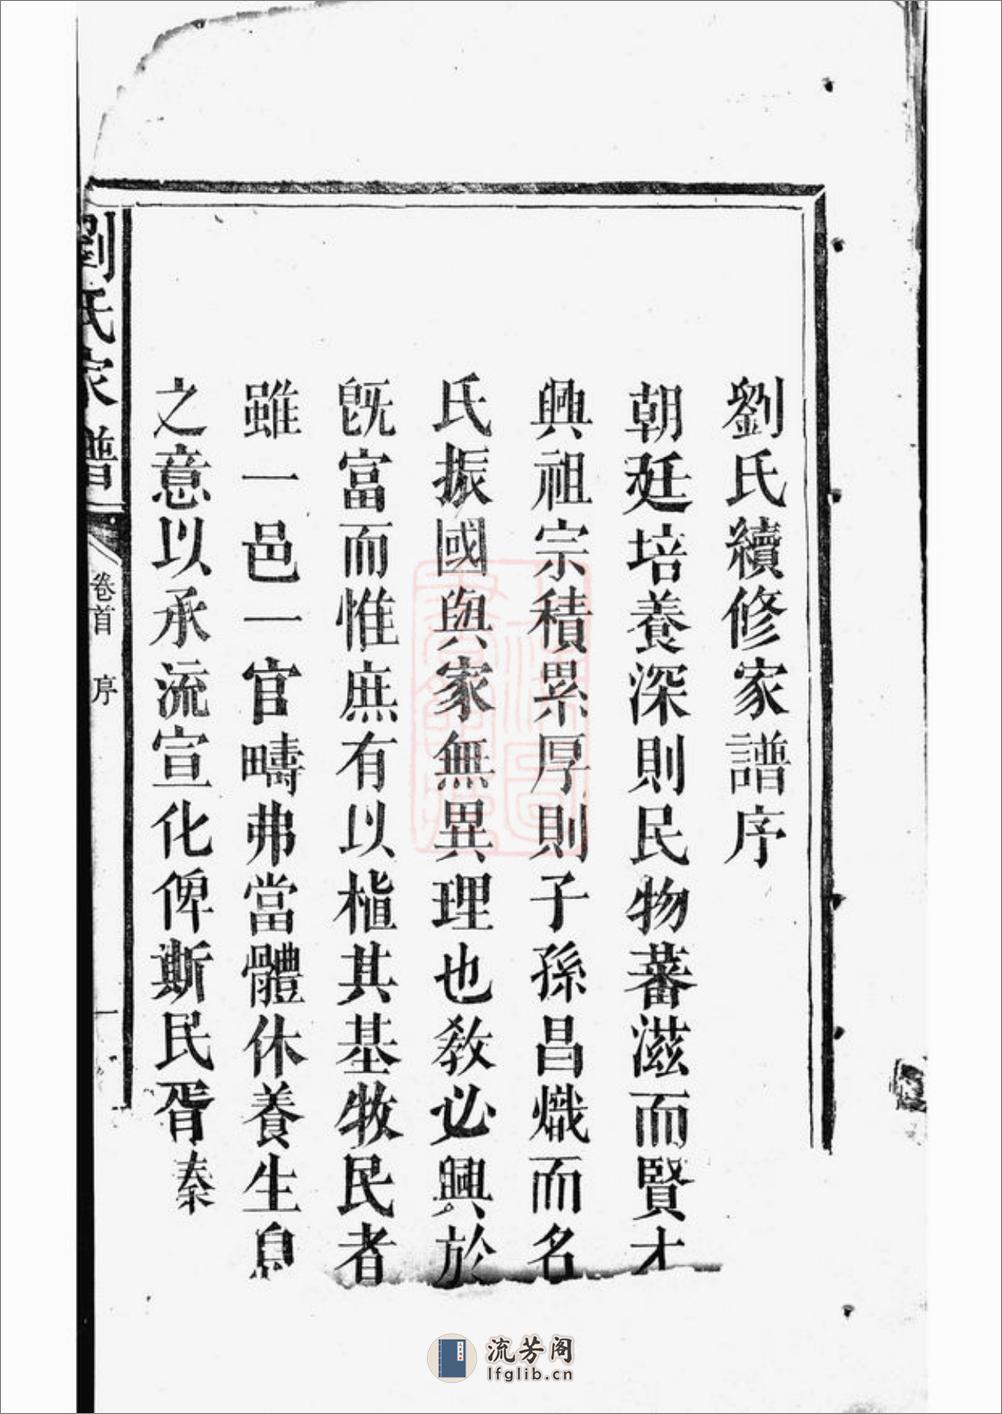 劉氏續修家譜序
朝廷培養深則民物蕃滋而賢才
興祖宗積累厚則子孫昌熾而名
氏振國與家無異理也教必興於
既富而惟庶有以植其基牧民者
雖一邑一官疇弗當體休養生息
之意以承流宣化俾斯民胥秦
劉氏家譜
卷首 序
一
流芳阁
lfglib.cn